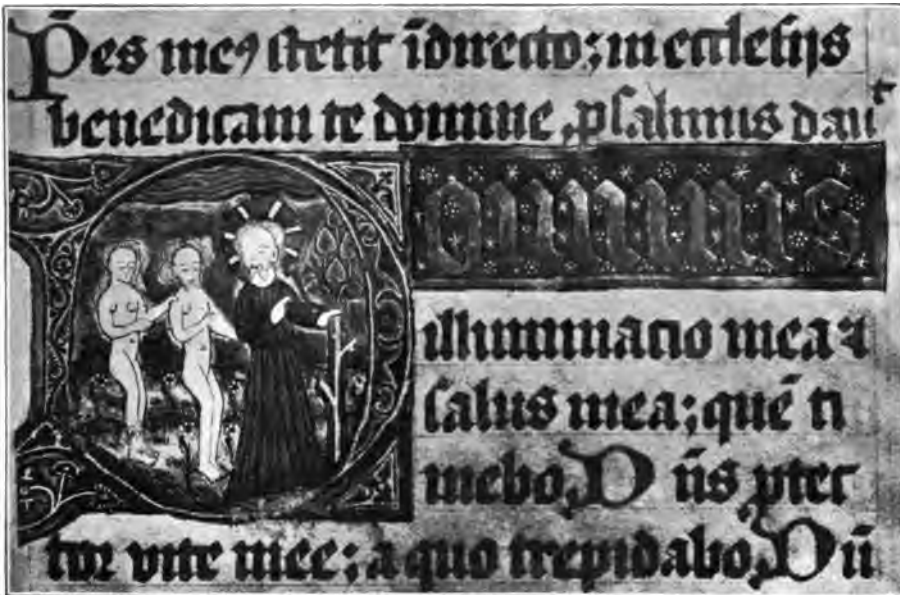 Pes meꝰ stetit īdirecto; in ecclesijs
benedicam te domine, psalmus dauit
Dominus
illuminacio mea ⁊
salus mea; quē ti
mebo, Dn̄s ꝓtec
tor vite mee; a quo trepidabo, Dū